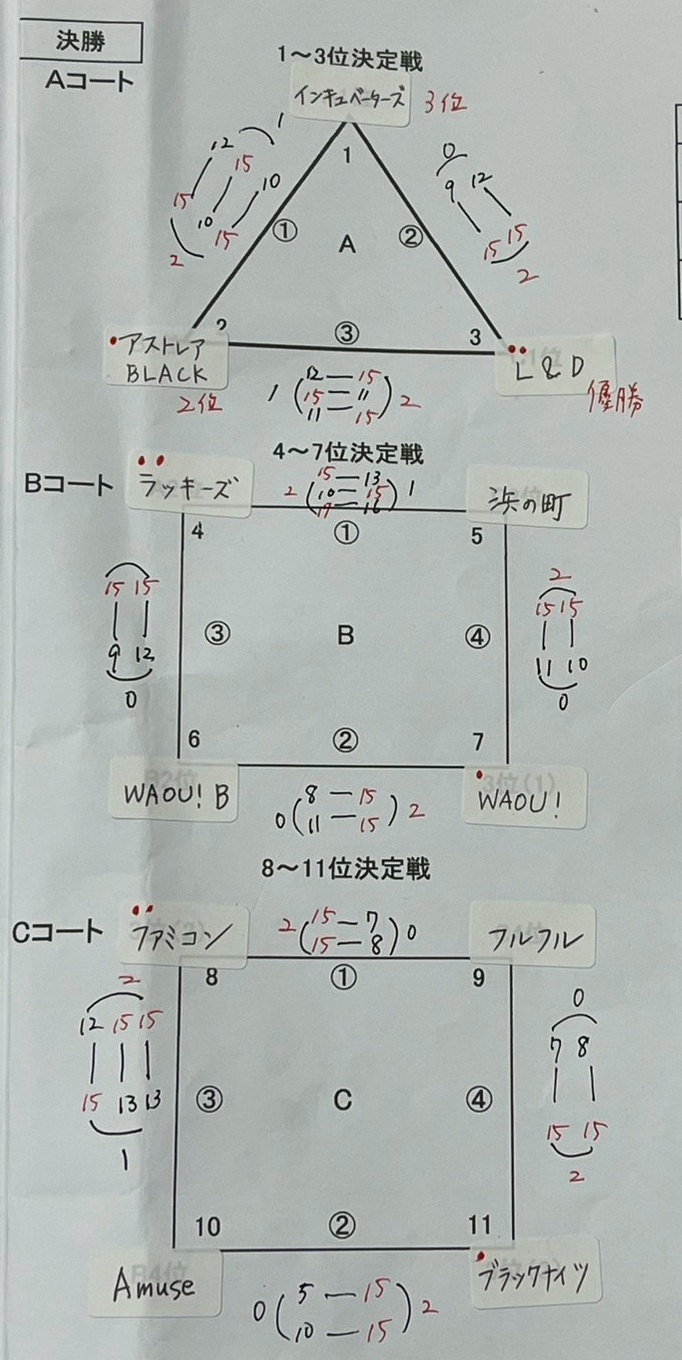 決勝
Aコート
1〜3位決定戦
インキュベーターズ 3位
1
0
12 15 10
9 12
1
15 10 15
① A ②
15 15
2
2
2 ③ 3
アストレア
BLACK
2位
L&D
優勝
1 (12—15) 2
15—11
11—15
4〜7位決定戦
Bコート
ラッキーズ
2 (15—13) 1
10—15
17—16
浜の町
4 ① 5
15 15
9 12
0
③ B ④
2
15 15
11 10
0
6 ② 7
WAOU! B
0 (8—15) 2
11—15
WAOU!
8〜11位決定戦
Cコート
ファミコン
2 (15—7) 0
15—8
フルフル
8 ① 9
2
12 15 15
15 13 13
1
③ C ④
0
7 8
15 15
2
10 ② 11
Amuse
0 (5—15) 2
10—15
ブラックナイツ